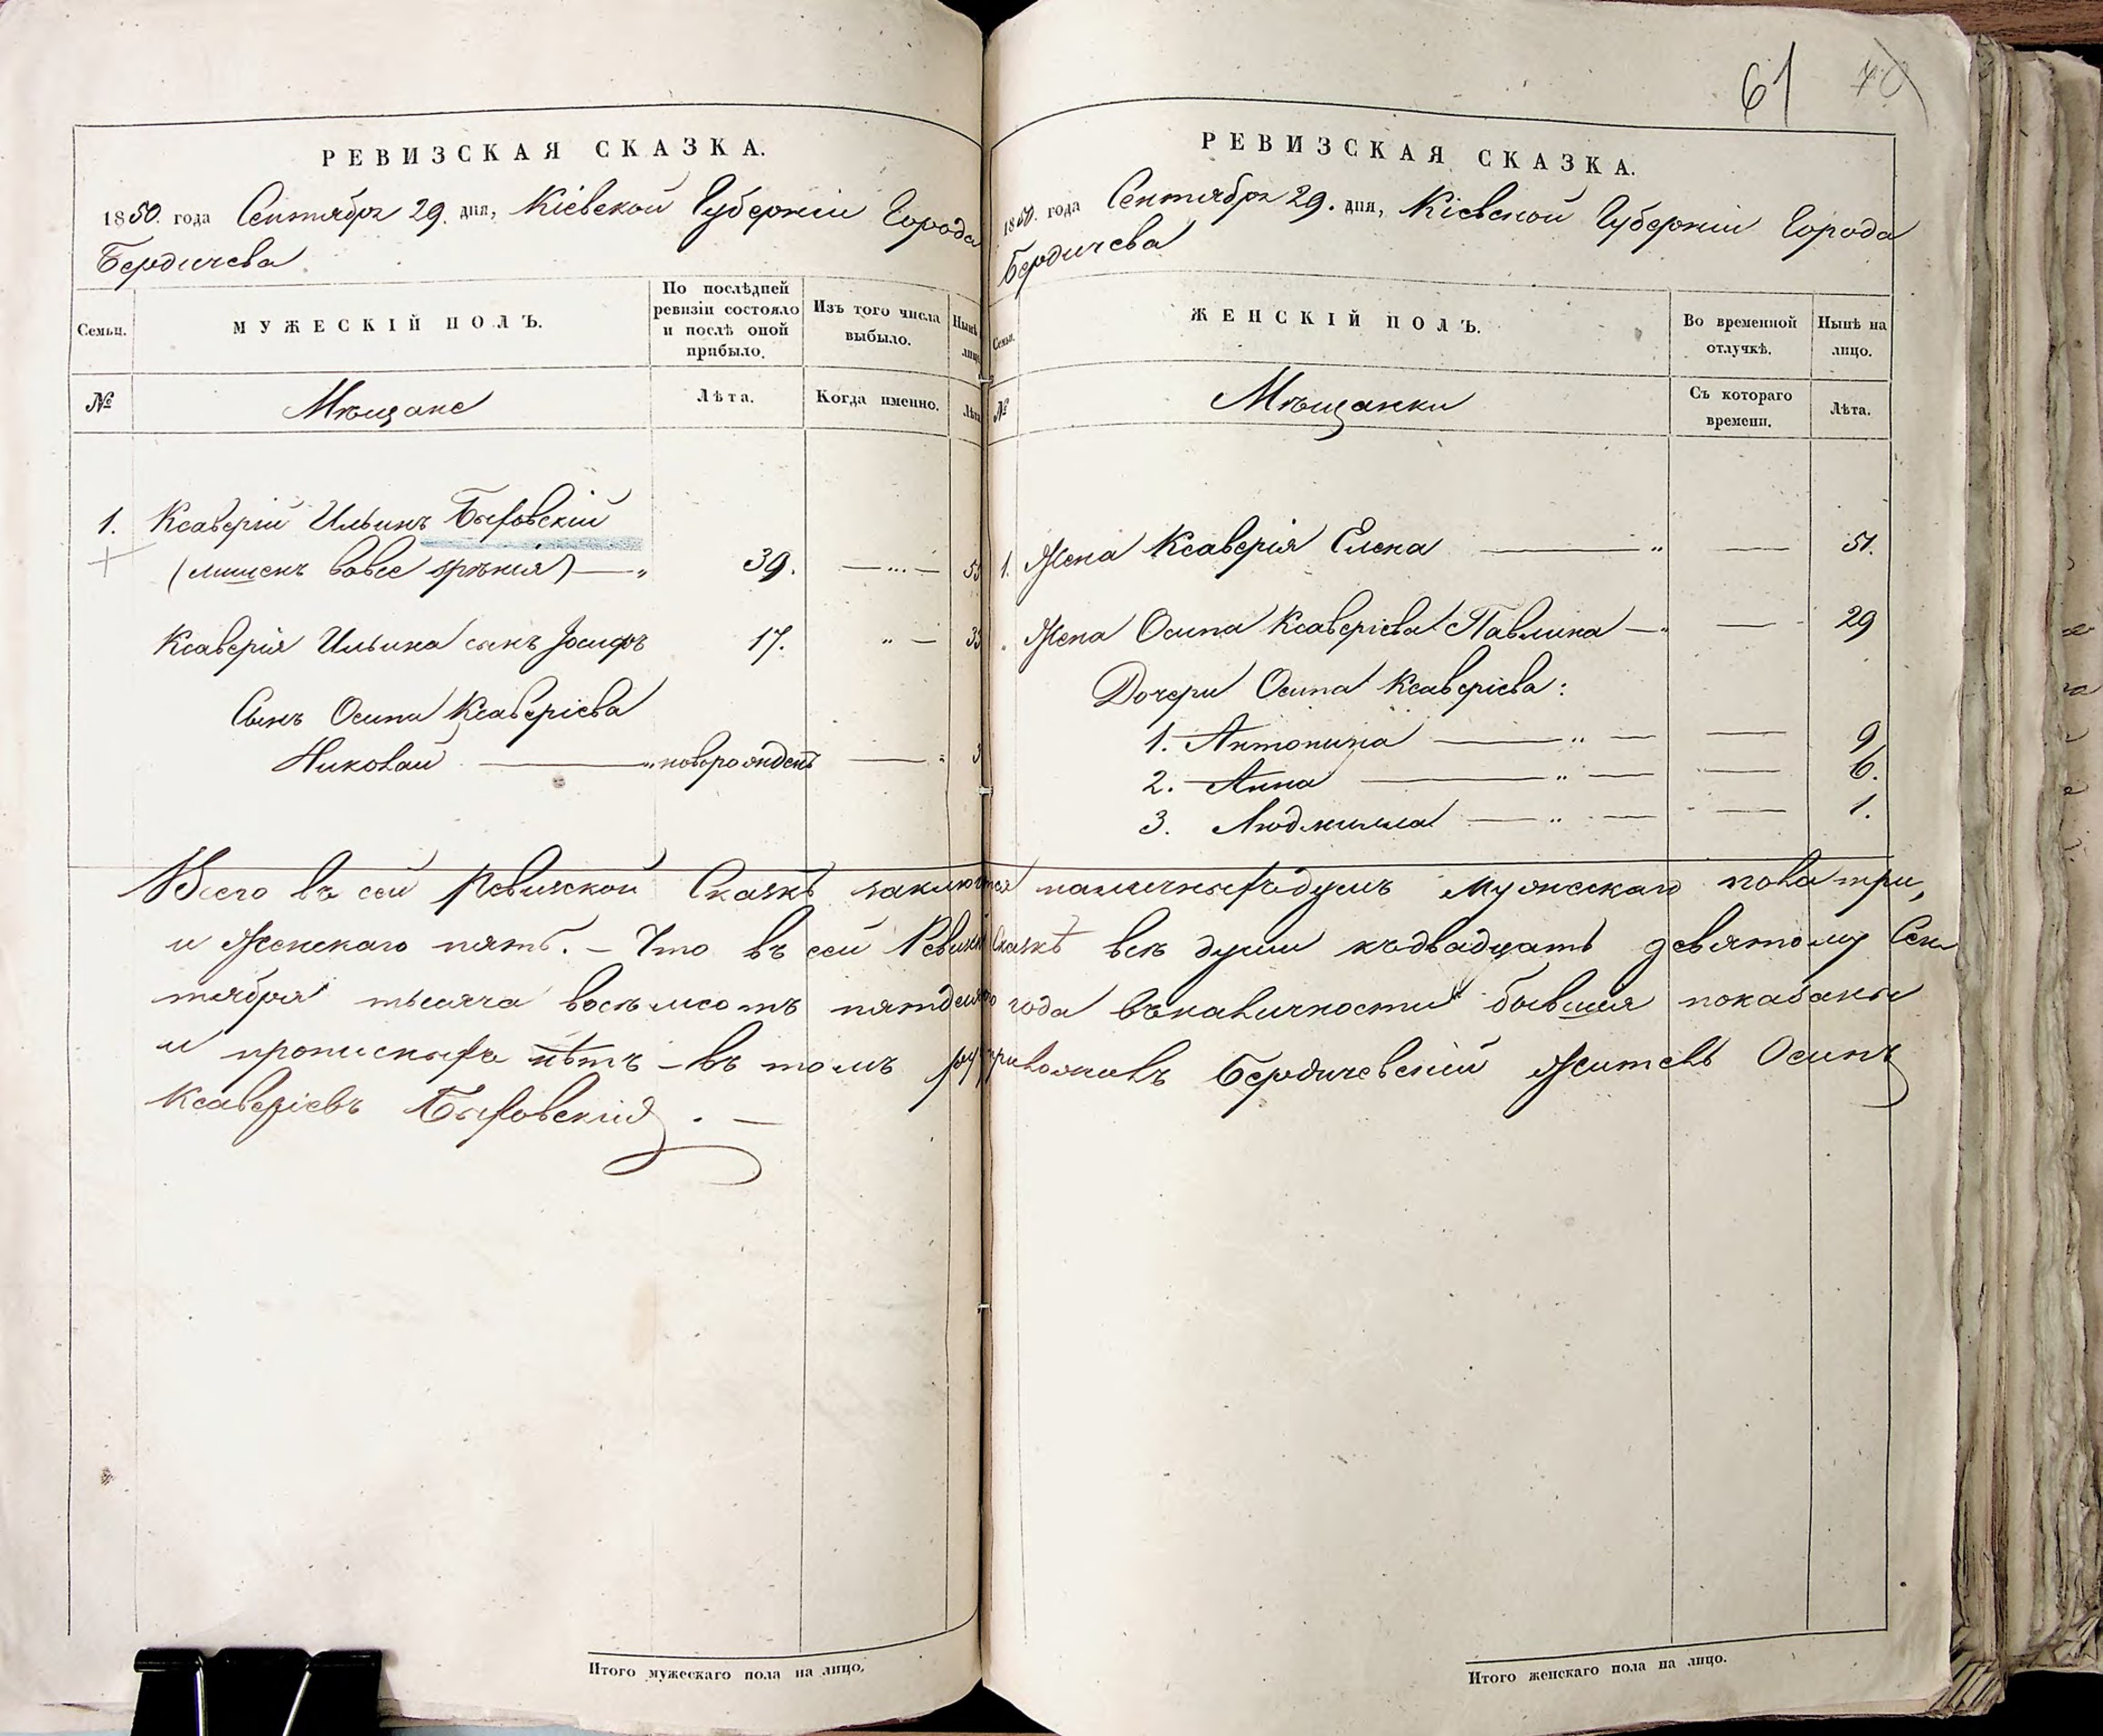 РЕВИЗСКАЯ СКАЗКА.
1850. года Сентября 29. дня, Кіевской Губерніи Города
Бердичева
Семьи.
МУЖЕСКІЙ ПОЛЪ.
По послѣдней
ревизіи состояло
и послѣ оной
прибыло.
Изъ того числа
выбыло.
Нынѣ
лицо
№
Мѣщане
Лѣта.
Когда именно.
Лѣта
1. Ксаверій Ильинъ Быховскій
(лишенъ вовсе зрѣнія) — „ 39. — „ — 55
Ксаверія Ильина сынъ Іосифъ 17. „ — 33
Сынъ Осипа Ксаверіева
Николай — „ новорожденъ — „ 3
Всего въ сей Ревизской Сказкѣ заключается
и Женскаго пять. – Что въ сей Ревизской
тября тысяча восемьсотъ пятдесятаго
и прописныхъ нѣтъ – въ томъ ру
Ксаверіевъ Быховскій. —
Итого мужескаго пола на лицо.
61 70
РЕВИЗСКАЯ СКАЗКА.
1850. года Сентября 29. дня, Кіевской Губерніи Города
Бердичева
Семьи.
ЖЕНСКІЙ ПОЛЪ.
Во временной
отлучкѣ.
Нынѣ на
лицо.
№
Мѣщанки
Съ котораго
времени.
Лѣта.
1. Жена Ксаверія Елена — „ — 51.
Жена Осипа Ксаверіева Павлина — „ — 29
Дочери Осипа Ксаверіева:
1. Антонина — „ — — 9
2. Анна — „ — — 6.
3. Людмилла — „ — — 1.
наличныхъ душъ мужескаго пола три,
Сказкѣ всѣ души къ двадцать девятому Сен
года въ наличности бывшія показаны
приложилъ Бердичевскій Житель Осипъ
Итого женскаго пола на лицо.